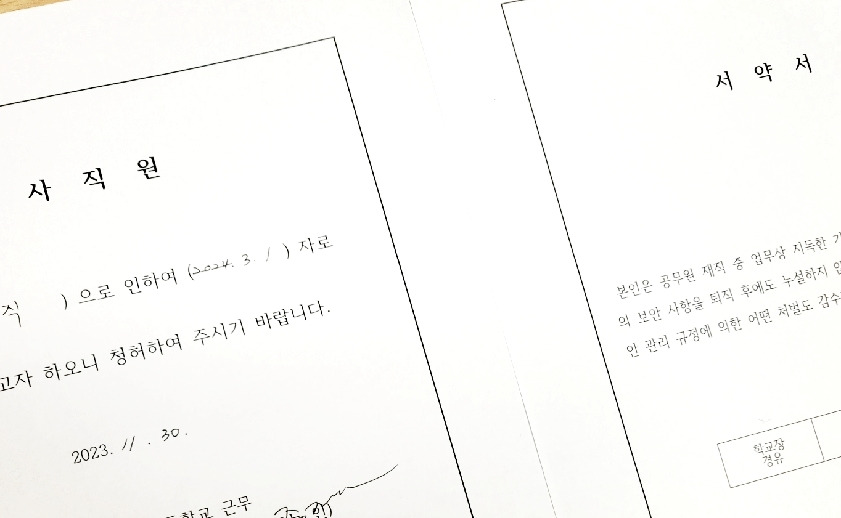 사 직 원
직 ) 으로 인하여 (2024. 3. 1 ) 자로
고자 하오니 청허하여 주시기 바랍니다.
2023. 11. 30.
학교 근무
서 약 서
본인은 공무원 재직 중 업무상 지득한
의 보안 사항을 퇴직 후에도 누설하지
안 관리 규정에 의한 어떤 처벌도 감수
학교장
경유